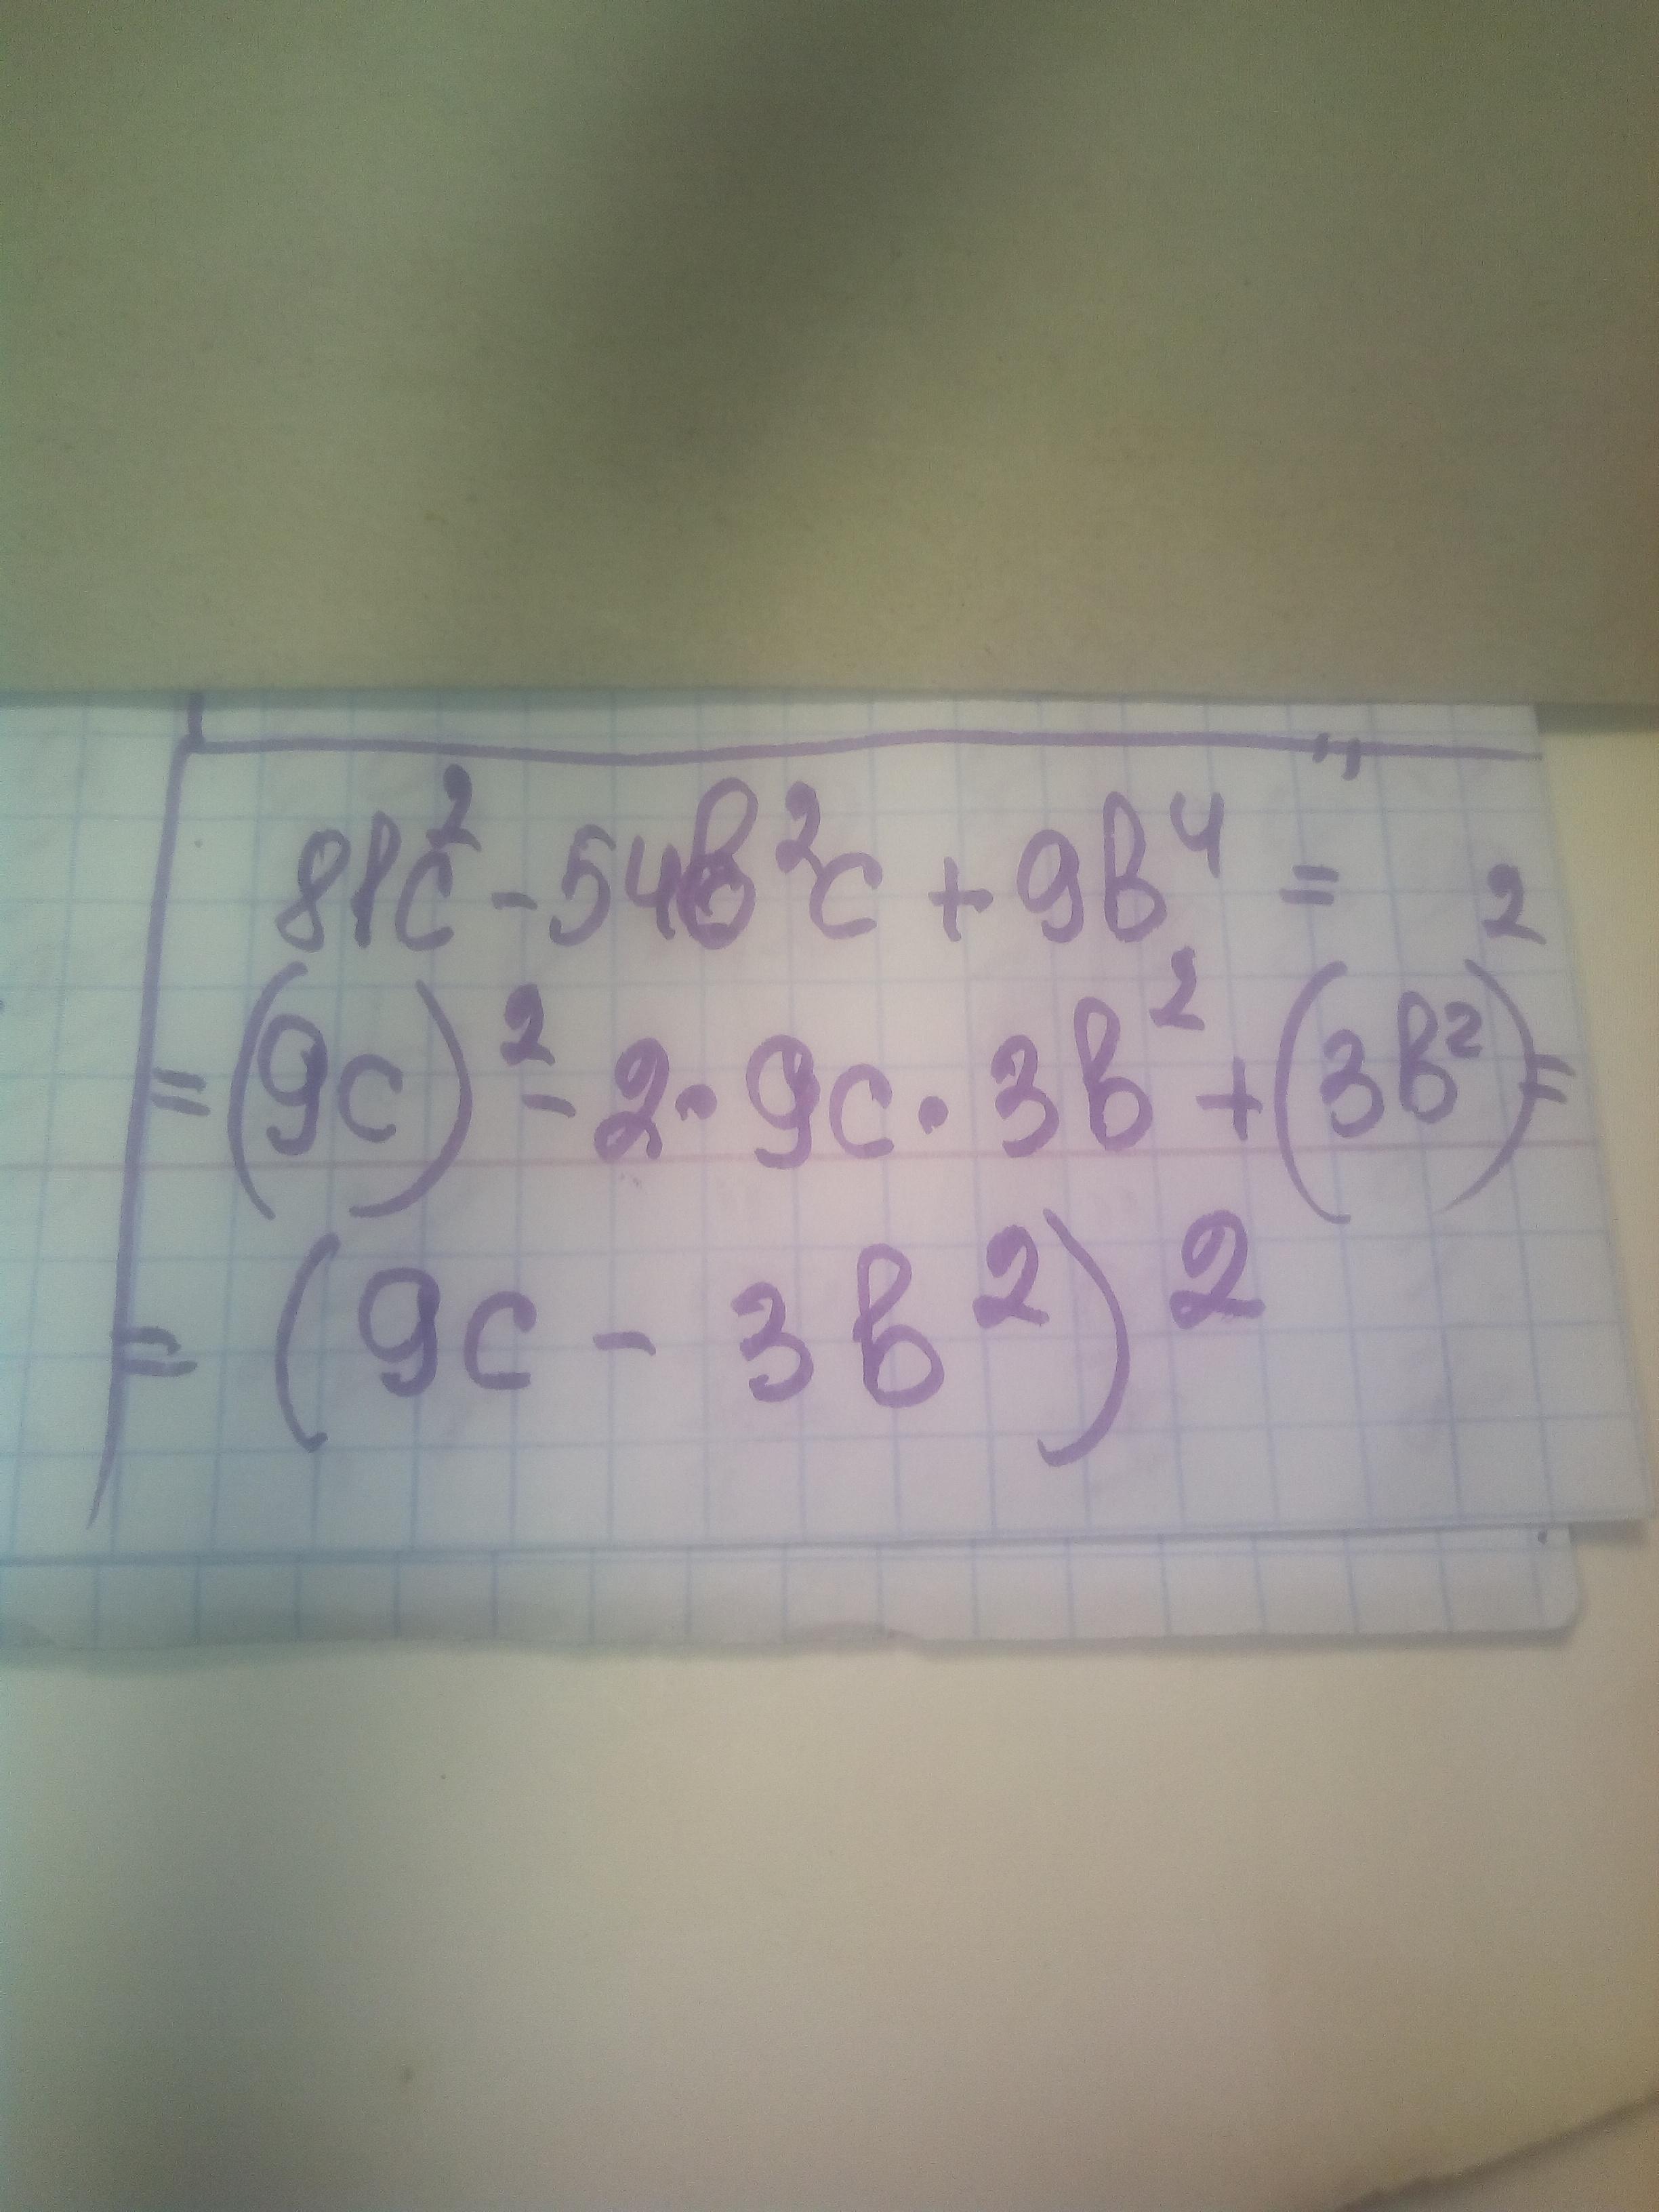 81c² - 54b²c + 9b⁴ =
= (9c)² - 2 · 9c · 3b² + (3b²)² =
= (9c - 3b²)²